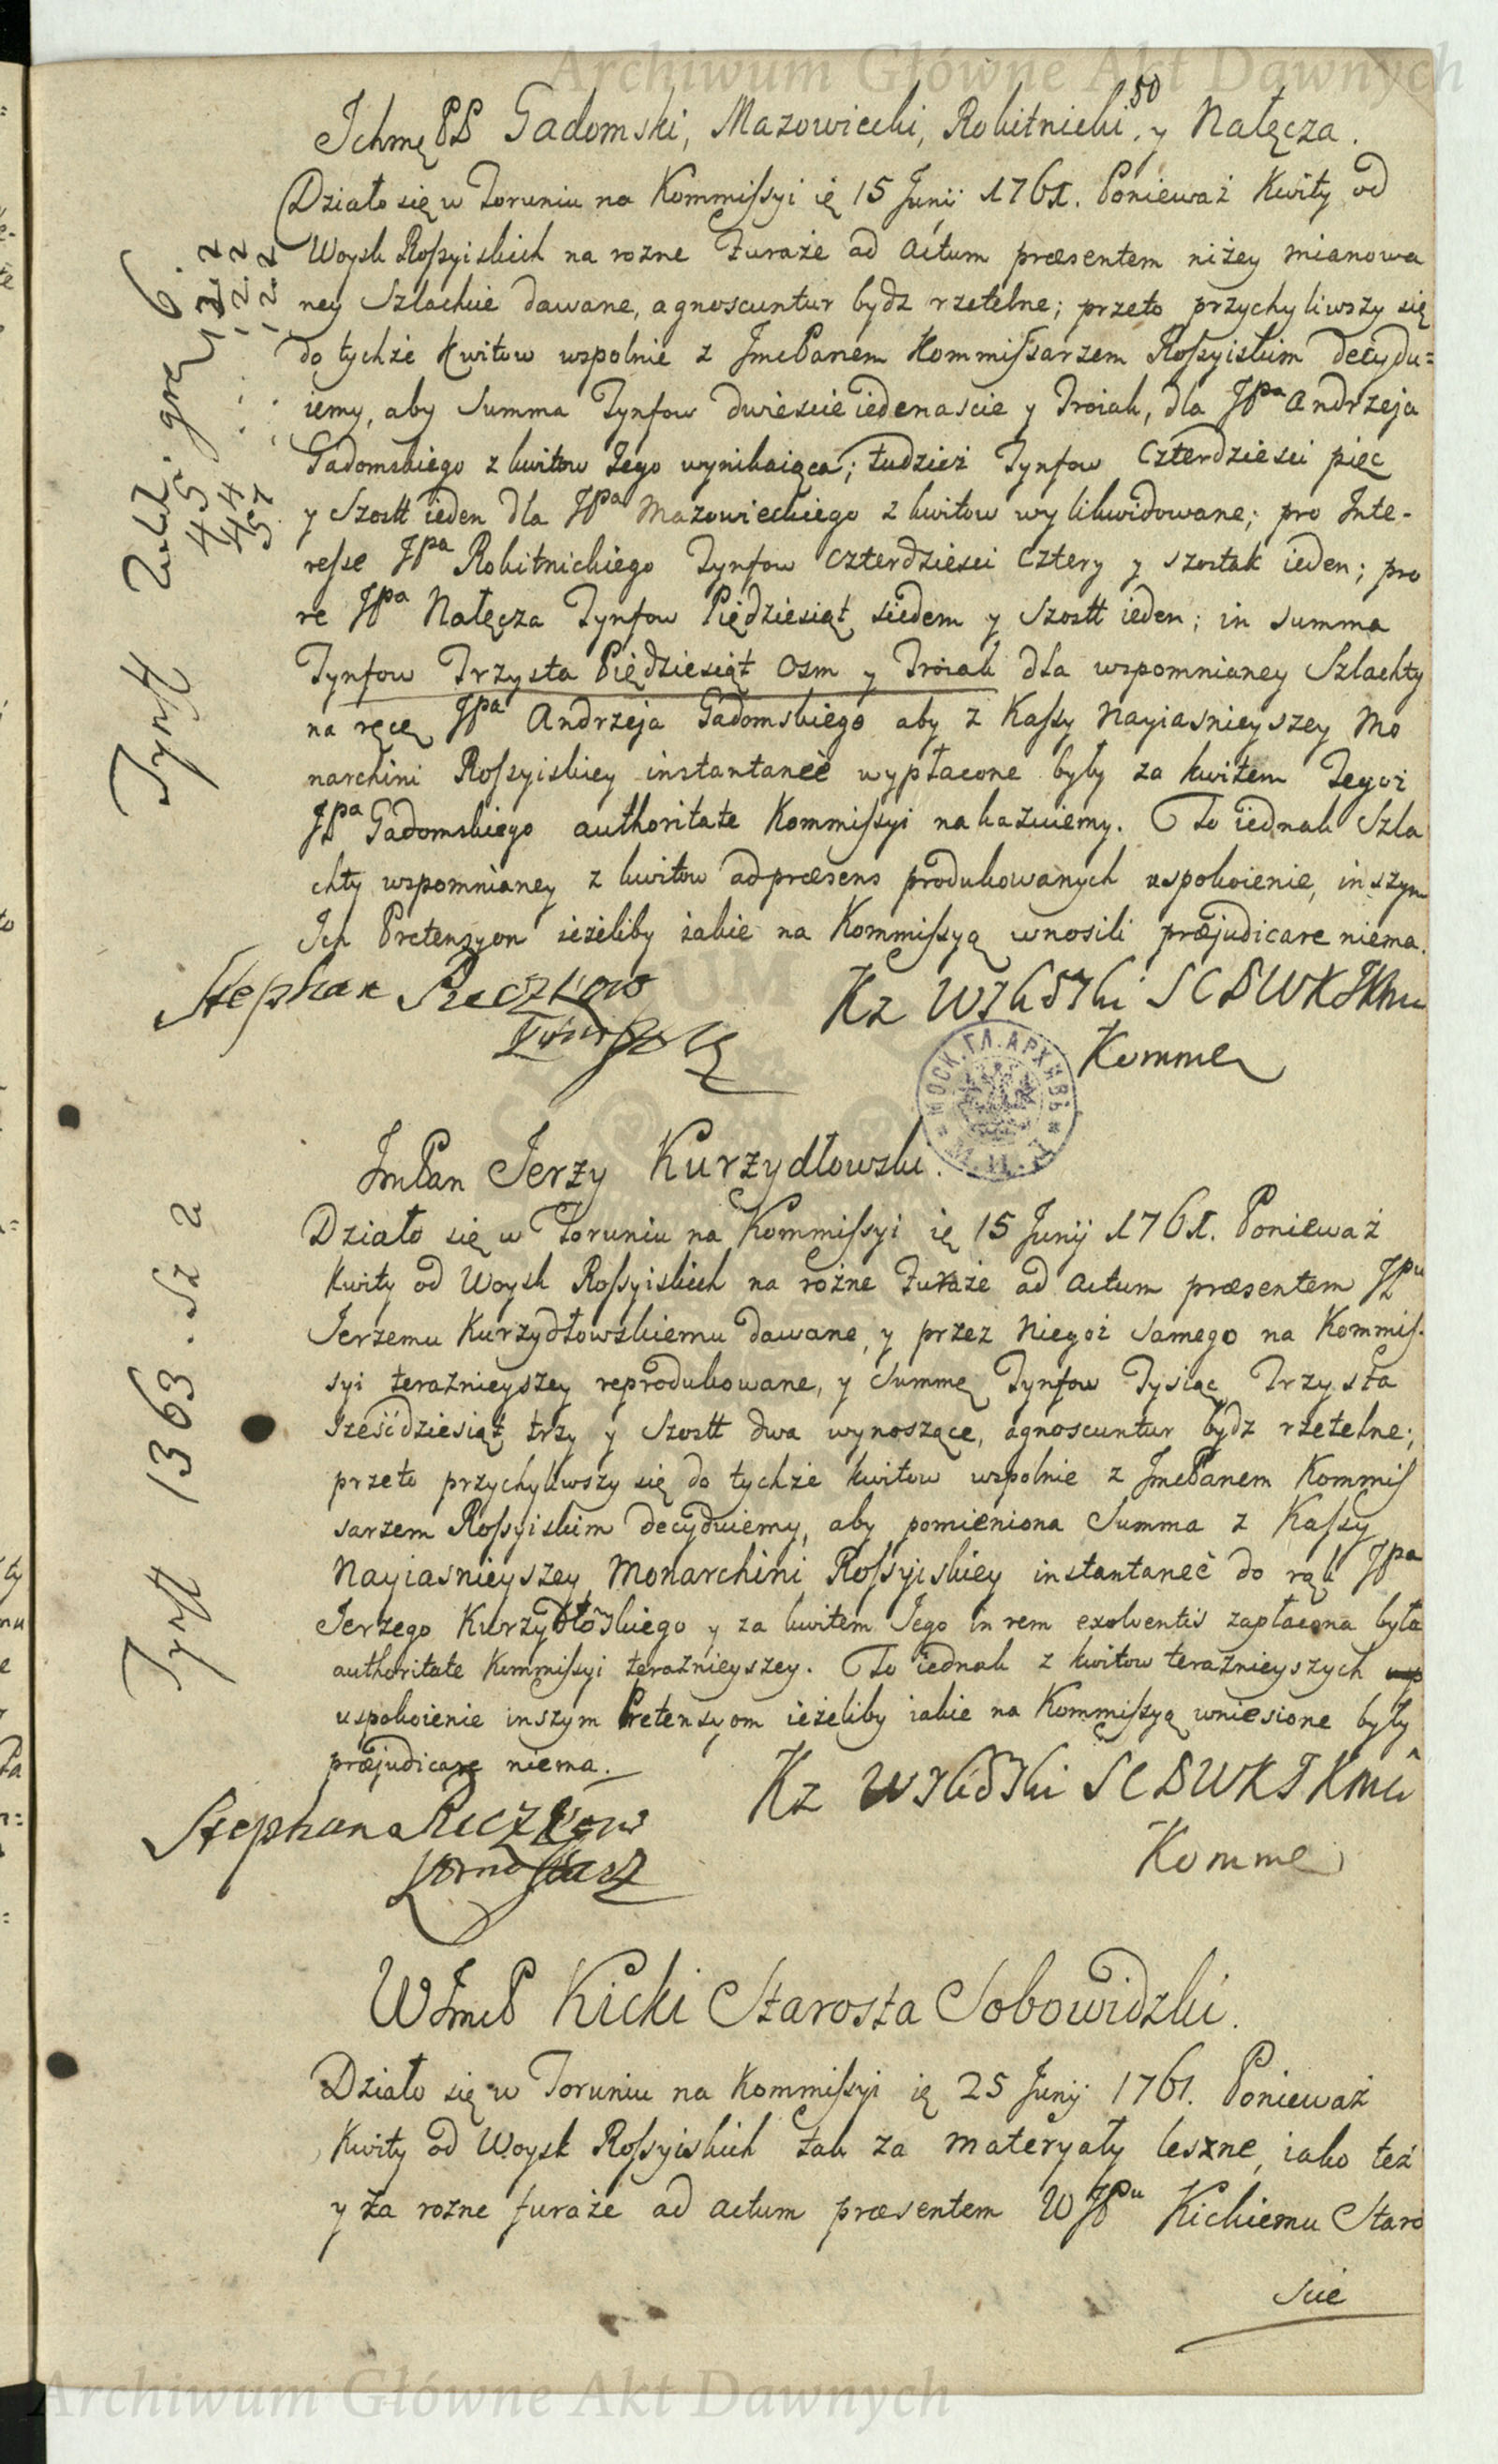 50
Ichmę PP Gadomski, Mazowiecki, Rokitnicki, y Nałęcza.
Działo się w Toruniu na Kommissyi ię 15 Junij 1761. Ponieważ Kwity od
Woysk Rossyiskich na rozne Furaże ad actum præsentem niżey mianowa
ney Szlachcie dawane, agnoscuntur bydz rzetelne; przeto przychyliwszy się
do tychże Kwitow wspolnie z JmcPanem Kommissarzem Rossyiskim decydu=
iemy, aby Summa Tynfow dwieście iedenascie y Troiak, dla JPa Andrzeja
Gadomskiego z kwitow Jego wynikaiąca; tudzież Tynfow Czterdziesci pięc
y Szostt ieden dla JPa Mazowieckiego z kwitow wylikwidowane; pro Inte-
resse JPa Rokitnickiego Tynfow Czterdziesci Cztery y szostak ieden; pro
re JPa Nałęcza Tynfow Pięćdziesiąt siedem y Szostt ieden; in summa
Tynfow Trzysta Pięćdziesiąt Osm y Troiak dla wspomnianey Szlachty
na ręce JPa Andrzeja Gadomskiego aby z Kassy Nayiasnieyszey Mo
narchini Rossyiskiey instantaneè wypłacone były za kwitem Tegoż
JPa Gadomskiego authoritate Kommissyi nakazuiemy. To iednak Szla
chty wspomnianey z kwitow ad præsens produkowanych uspokoienie, inszym
Ich Pretensyom ieżeliby iakie na Kommissyą wnosili præjudicare niema.
Stephan
Komme
Tynff 1363. Sz 2
JmPan Jerzy Kurzydłowski.
Działo się w Toruniu na Kommissyi ię 15 Junij 1761. Ponieważ
Kwity od Woysk Rossyiskich na rożne Furaże ad actum præsentem JPu
Jerzemu Kurzydłowskiemu dawane, y przez Niegoż samego na Kommis-
syi teraznieyszey reprodukowane, y Summę Tynfow Tysiąc Trzysta
sześćdziesiąt trzy y Szostt dwa wynoszące, agnoscuntur bydz rzetelne;
przeto przychyliwszy się do tychże kwitow wspolnie z JmcPanem Kommis
sarzem Rossyiskim decyduiemy, aby pomieniona Summa z Kassy
Nayiasnieyszey Monarchini Rossyiskiey instantaneè do rąk JPa
Jerzego Kurzydłõskiego y za kwitem Jego in rem exolventis zapłacona była
authoritate Kommissyi teraznieyszey. To iednak z kwitow teraznieyszych
uspokoienie inszym Pretensyom ieżeliby iakie na Kommissyą wniesione były
præjudicare niema.
Stephan
Komme
WJmcP Kicki Starosta Sobowidzki.
Działo się w Toruniu na Kommissyi ię 25 Junij 1761. Ponieważ
Kwity od Woysk Rossyiskich tak za materyały lesne, iako też
y za rozne furaże ad actum præsentem WJPu Kickiemu Staro
scie
Archiwum Główne Akt Dawnych
Archiwum Główne Akt Dawnych